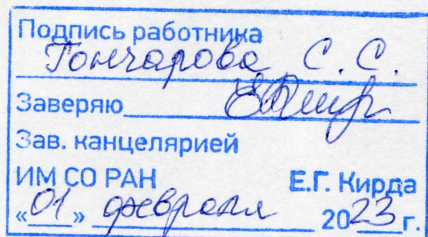 Подпись работника
Гончарова С. С.
Заверяю
Зав. канцелярией
ИМ СО РАН Е.Г. Кирда
«01» февраля 2023 г.